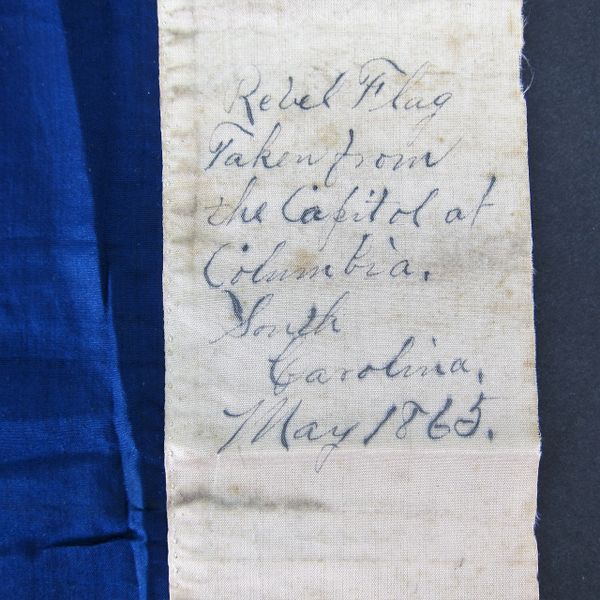 Rebel Flag
Taken from
the Capitol at
Columbia.
South
Carolina,
May 1865.